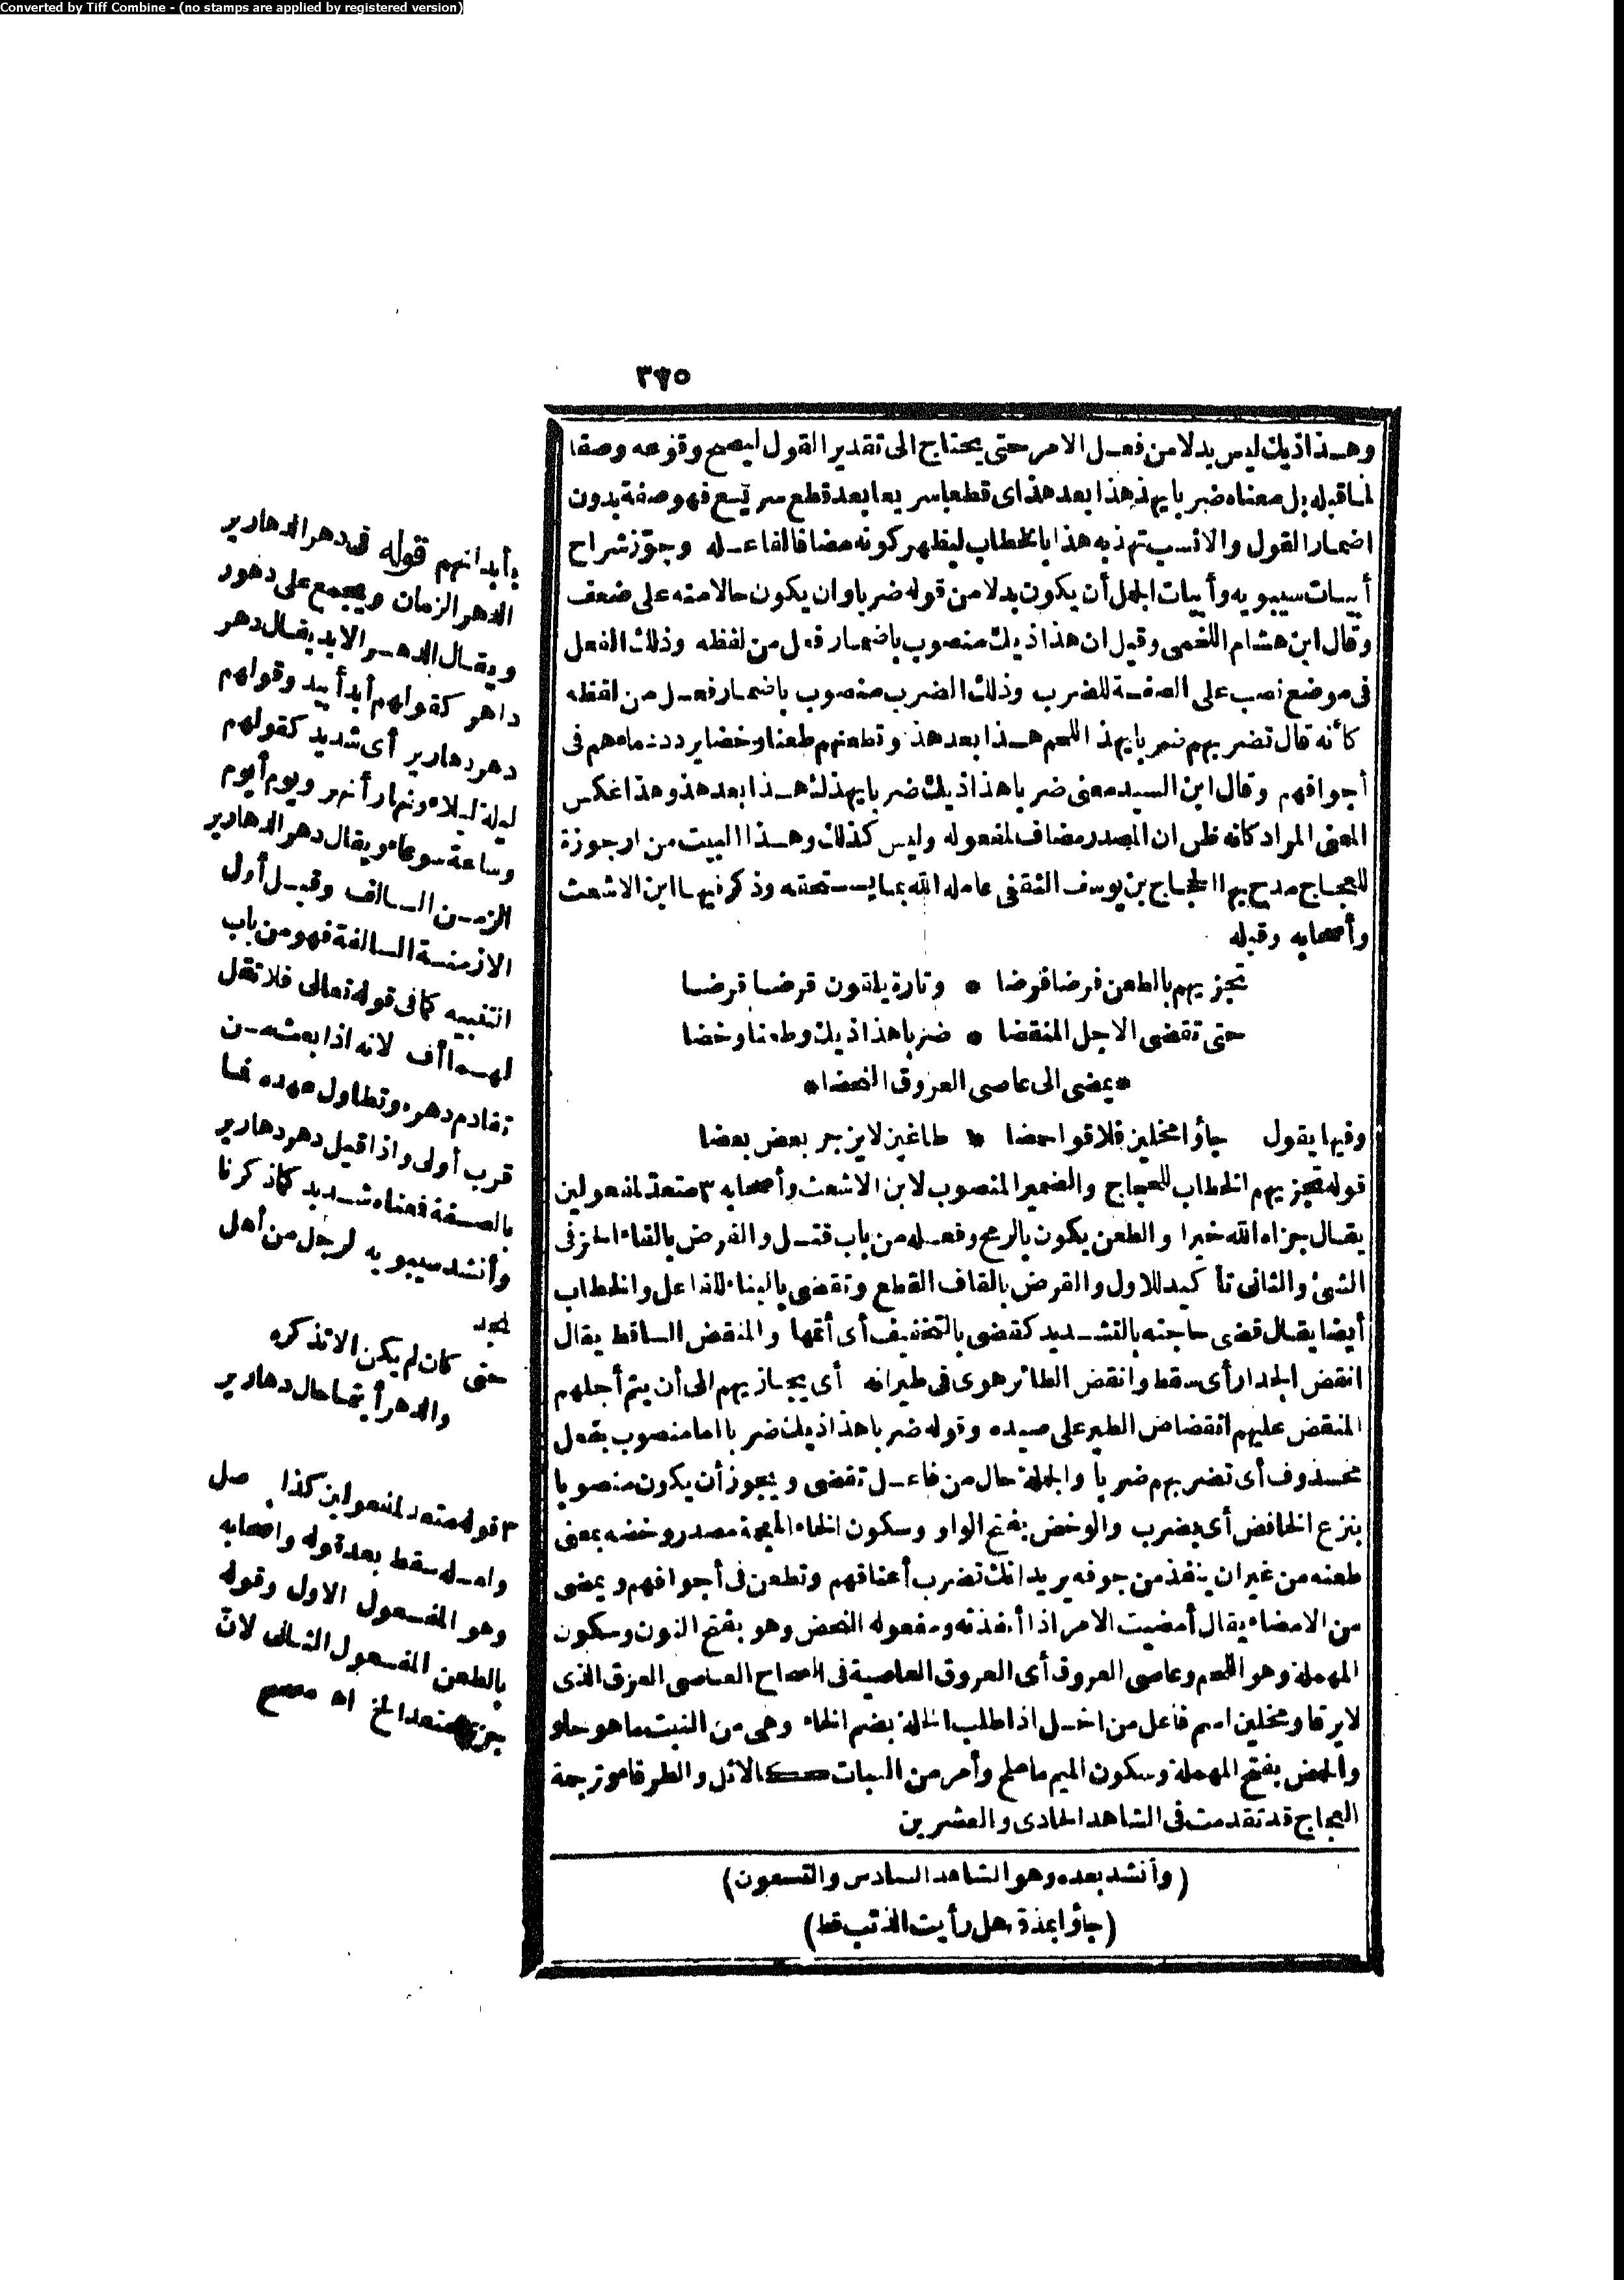 Converted by Tiff Combine - (no stamps are applied by registered version)
٢٧٥
وهذاذيك ليس بدلا من فعل الامر حتى يحتاج الى تقدير القول ليصح وقوعه وصفا
لما قبله بل معناه ضربا يهذ هذا بعد هذ اى قطعا سريعا بعد قطع سريع فهو صفة بدون
اضمار القول والانسب تهذ به هذا بالخطاب ليظهر كونه مضافا لفاعله وجوّز شراح
أبيات سيبويه وأبيات الجمل أن يكون بدلا من قوله ضربا وان يكون حالا منه على ضعف
وقال ابن هشام اللخمى وقيل ان هذاذيك منصوب باضمار فعل من لفظه وذلك الفعل
فى موضع نصب على الصفة للضرب وذلك الضرب منصوب باضمار فعل من لفظه
كأنه قال تضربهم ضربا يهذ اللحم هذا بعد هذ وتطعنهم طعنا وخضا يردد دماءهم فى
أجوافهم وقال ابن السيد معنى ضربا هذاذيك ضربا يهذك هذا بعد هذ وهذا عكس
المعنى المراد كانه ظن ان المصدر مضاف لمفعوله وليس كذلك وهذا البيت من ارجوزة
للعجاج مدح بها الحجاج بن يوسف الثقفى عامله الله بما يستحقه وذكر فيها ابن الاشعث
وأصحابه وقبله
تجزيهم بالطعن فرضا فرضا * وتارة يلقون قرضا قرضا
حتى تقضى الاجل المنقضا * ضربا هذاذيك وطعنا وخضا
*يمضى الى عاصى العروق النحضا*
وفيها يقول جاؤا مخلين فلاقوا حمضا * طاغين لا يزجر بعض بعضا
قوله تجزيهم الخطاب للحجاج والضمير المنصوب لابن الاشعث وأصحابه ٣ متعد لمفعولين
يقال جزاه الله خيرا والطعن يكون بالرمح وفعله من باب قتل والفرض بالفاء الحز فى
الشئ والثانى تأكيد للاول والقرض بالقاف القطع وتقضى بالبناء للفاعل والخطاب
أيضا يقال قضى حاجته بالتشديد كقضى بالتخفيف أى أتمها والمنقض الساقط يقال
انقض الجدار أى سقط وانقض الطائر هوى فى طيرانه أى يجازيهم الى أن يتم أجلهم
المنقض عليهم انقضاض الطير على صيده وقوله ضربا هذاذيك ضربا اما منصوب بفعل
محذوف أى تضربهم ضربا والجملة حال من فاعل تقضى ويجوز أن يكون منصوبا
بنزع الخافض أى بضرب والوخض بفتح الواو وسكون الخاء المعجمة مصدر وخضه بمعنى
طعنه من غير ان ينفذ من جوفه يريد انك تضرب أعناقهم وتطعن فى أجوافهم ويمضى
من الامضاء يقال أمضيت الامر اذا أنفذته ومفعوله النحض وهو بفتح النون وسكون
المهملة وهو اللحم وعاصى العروق أى العروق العاصية فى الصحاح العاصى العرق الذى
لا يرقا ومخلين اسم فاعل من اخل اذا طلب الخلة بضم الخاء وهى من النبت ما هو حلو
والحمض بفتح المهملة وسكون الميم ما ملح وأمر من النبات كالاثل والطرفا وترجمة
العجاج قد تقدمت فى الشاهد الحادى والعشرين
(وأنشد بعده وهو الشاهد السادس والتسعون)
(جاؤا بمذق هل رأيت الذئب قط)
بأبدانهم قوله فى دهر الدهارير
الدهر الزمان ويجمع على دهور
ويقال الدهر الابد يقال دهر
داهر كقولهم أبد أبيد وقولهم
دهر دهارير أى شديد كقولهم
ليلة ليلاء ونهار أنهر ويوم أيوم
وساعة سوعاء ويقال دهر الدهارير
الزمن السالف وقيل أول
الازمنة السالفة فهو من باب
التنبيه كما فى قوله تعالى فلا تقل
لهما أف لانه اذا
تقادم دهره وتطاول عهده فما
قرب أولى واذا قيل دهر دهارير
بالصفة فمعناه شديد كما ذكرنا
وأنشد سيبويه لرجل من أهل
نجد
حتى كان لم يكن الا تذكره
والدهر أيتما حال دهارير
٣ قوله متعد لمفعولين كذا بالاصل
ولعله سقط بعد قوله واصحابه
وهو المفعول الاول وقوله
بالطعن المفعول الثانى لان
جزى متعد الخ اه مصحح